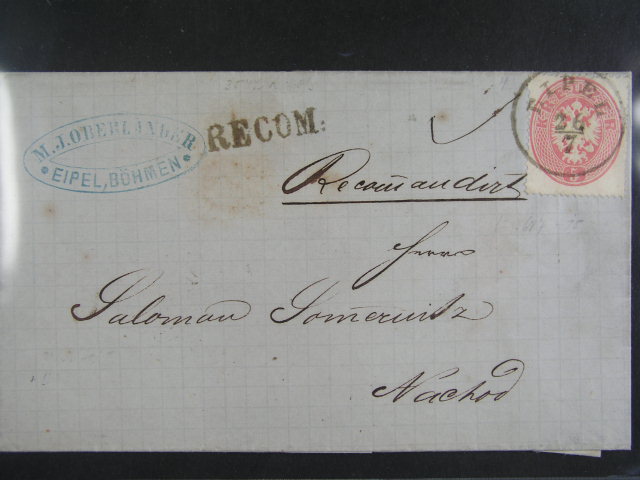 M. J. OBERLÄNDER
* EIPEL, BÖHMEN *
RECOM:
EIPEL
24
7
5
Recom̄andirt
Herrn
Salomon Som̄erwitz
Nachod